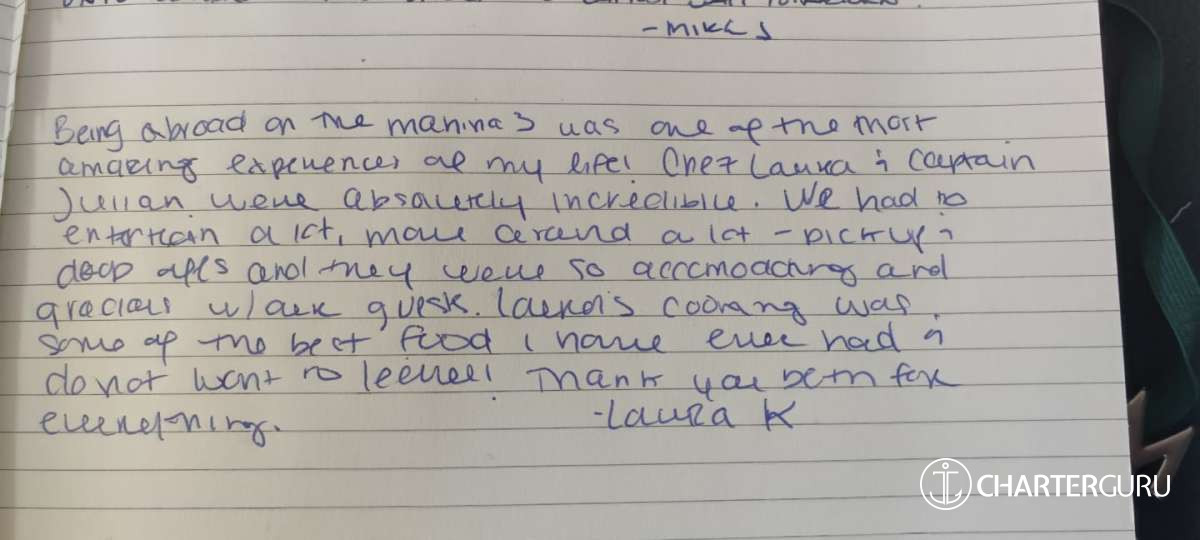 -MIKE S
Being abroad on the manina 3 was one of the most
amazing experiences of my life! Chef Laura & Captain
Julian were absolutely incredible. We had to
entertain a lot, move around a lot - pickup &
drop offs and they were so accomodating and
gracious w/our guests. Laura's cooking was
some of the best food I have ever had &
do not want to leave! Thank you both for
everything.
-Laura K
CHARTERGURU